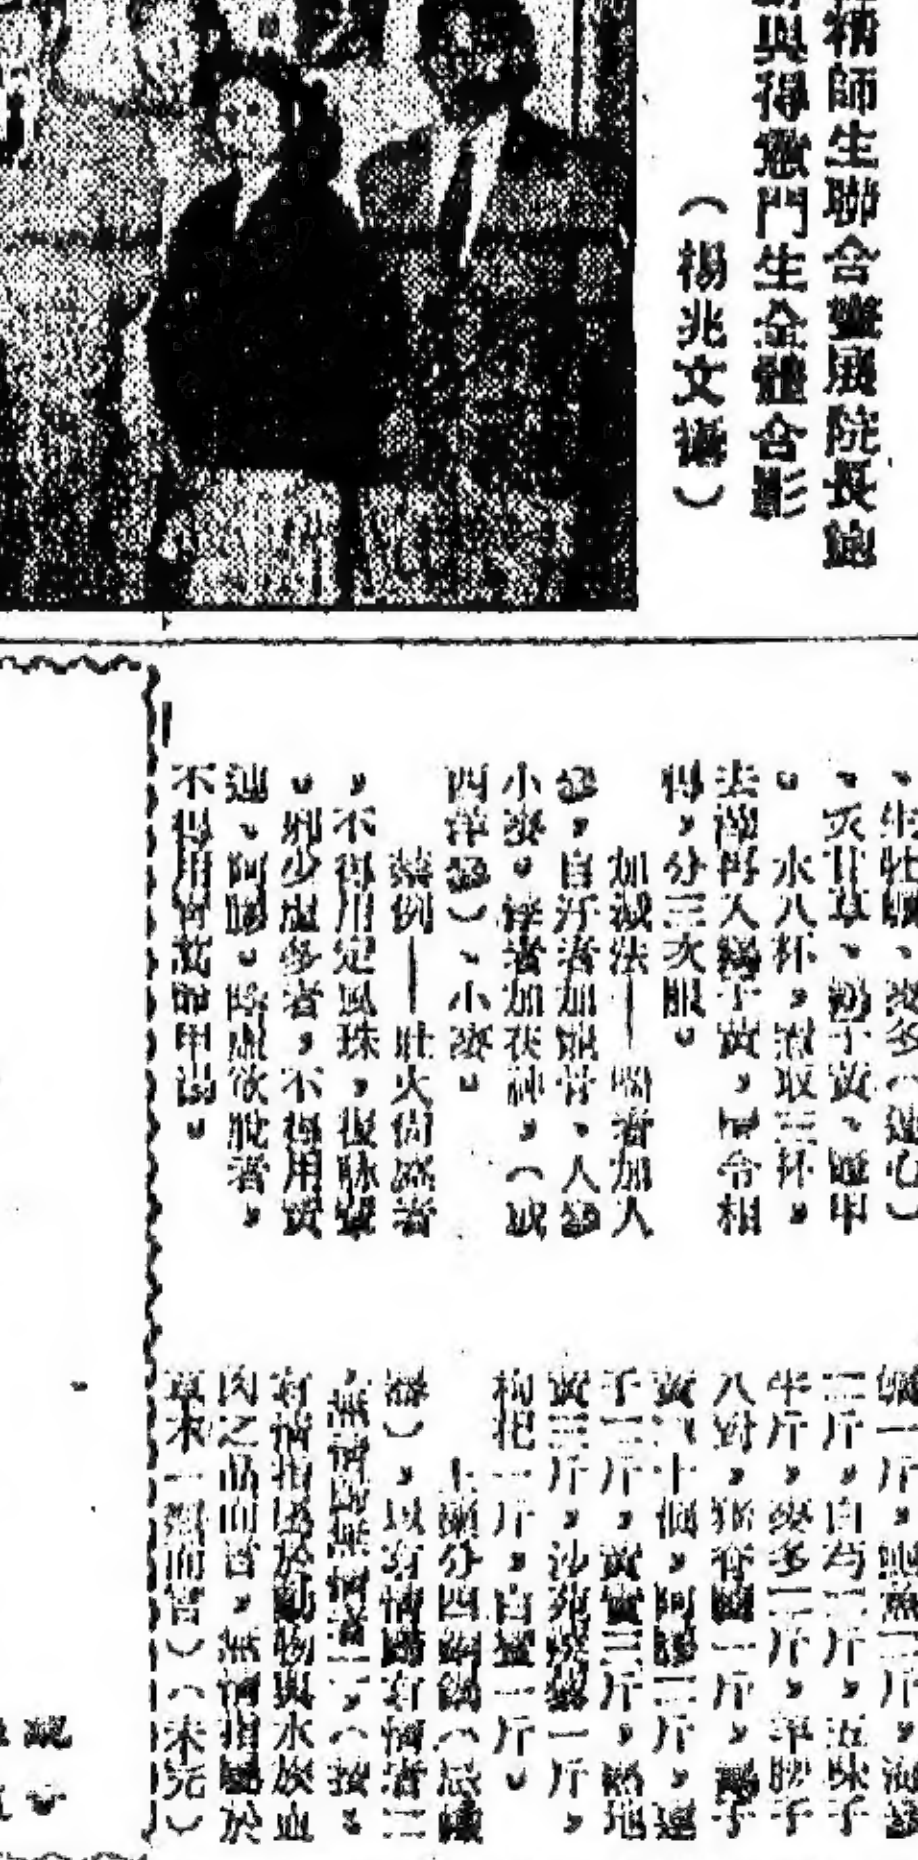 精師生聯合藝展院長鮑
與得意門生全體合影
（楊兆文攝）
、生牡蠣、麥冬（連心）
、炙甘草、雞子黃、鱉甲
。水八杯，煮取三杯，
去滓再入雞子黃，攪令相
得，分三次服。
加減法—喘者加人
參，自汗者加龍骨、人參
小麥。悸者加茯神，（或
西洋參）、小麥。
禁例—壯火尚盛者
，不得用定風珠，復脉湯
。邪少虛多者，不得用黃
連、阿膠。陰虛欲脫者，
不得用青蒿鱉甲湯。
一斤，二斤，海參
二斤，白芍二斤，五味子
半斤，麥冬二斤，羊腰子
八對，猪脊髓一斤，雞子
黃二十個，阿膠二斤，蓮
子二斤，芡實三斤，熟地
黃三斤，沙苑蒺藜一斤，
枸杞一斤，白蜜一斤。
上藥分四銅鍋（忌鐵
器），以有情歸有情者二
，無情歸無情者二，（按：
有情指屬於動物與水族血
肉之品而言，無情指屬於
草木一類而言）（未完）